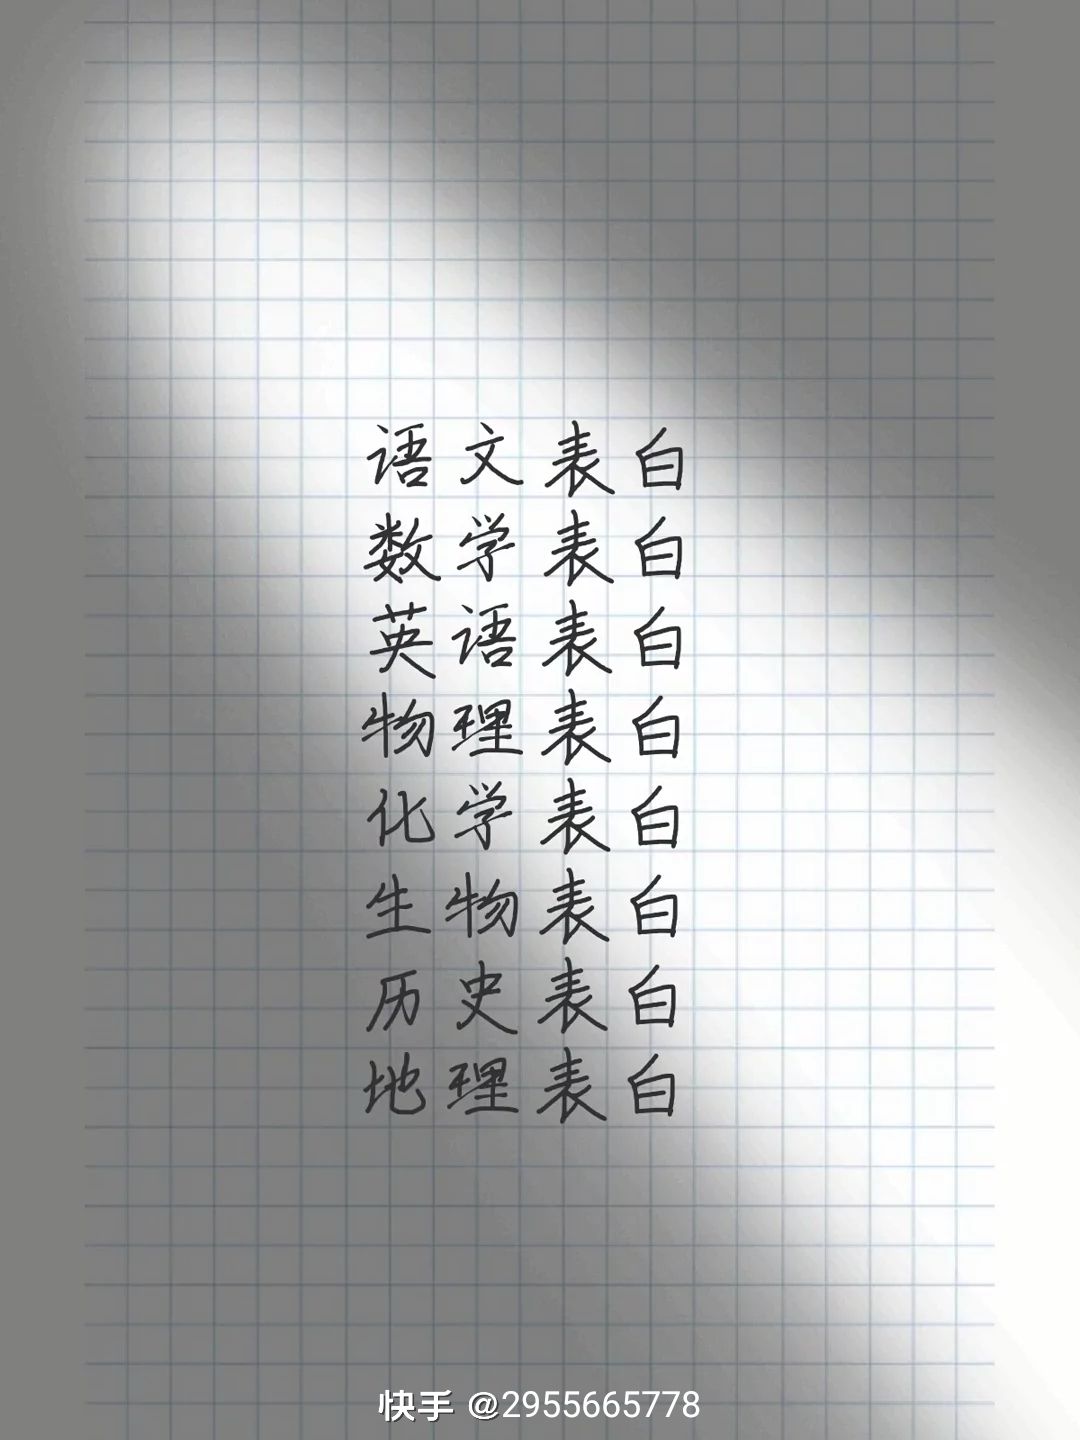 语文表白
数学表白
英语表白
物理表白
化学表白
生物表白
历史表白
地理表白
快手 @2955665778